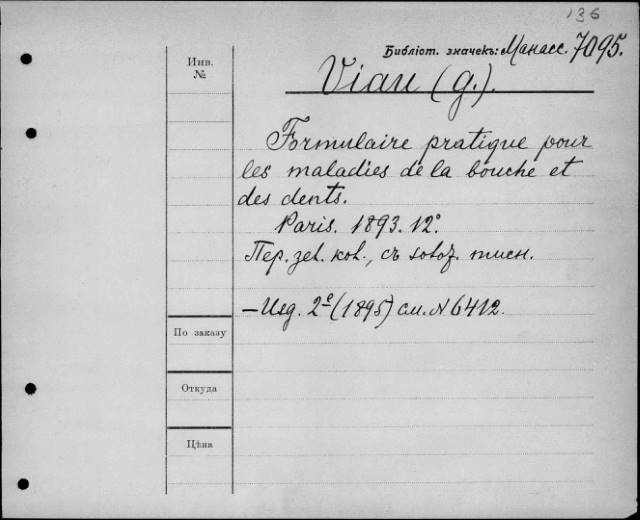 136
Библіот. значекъ: Манасс. 7095.
Инв.
№
Vian (G.).
Formulaire pratique pour
les maladies de la bouche et
des dents.
Paris. 1893. 12°.
Пер. зел. кол., съ золот. тисн.
— Изд. 2е (1895) см. № 6412.
По заказу
Откуда
Цѣна